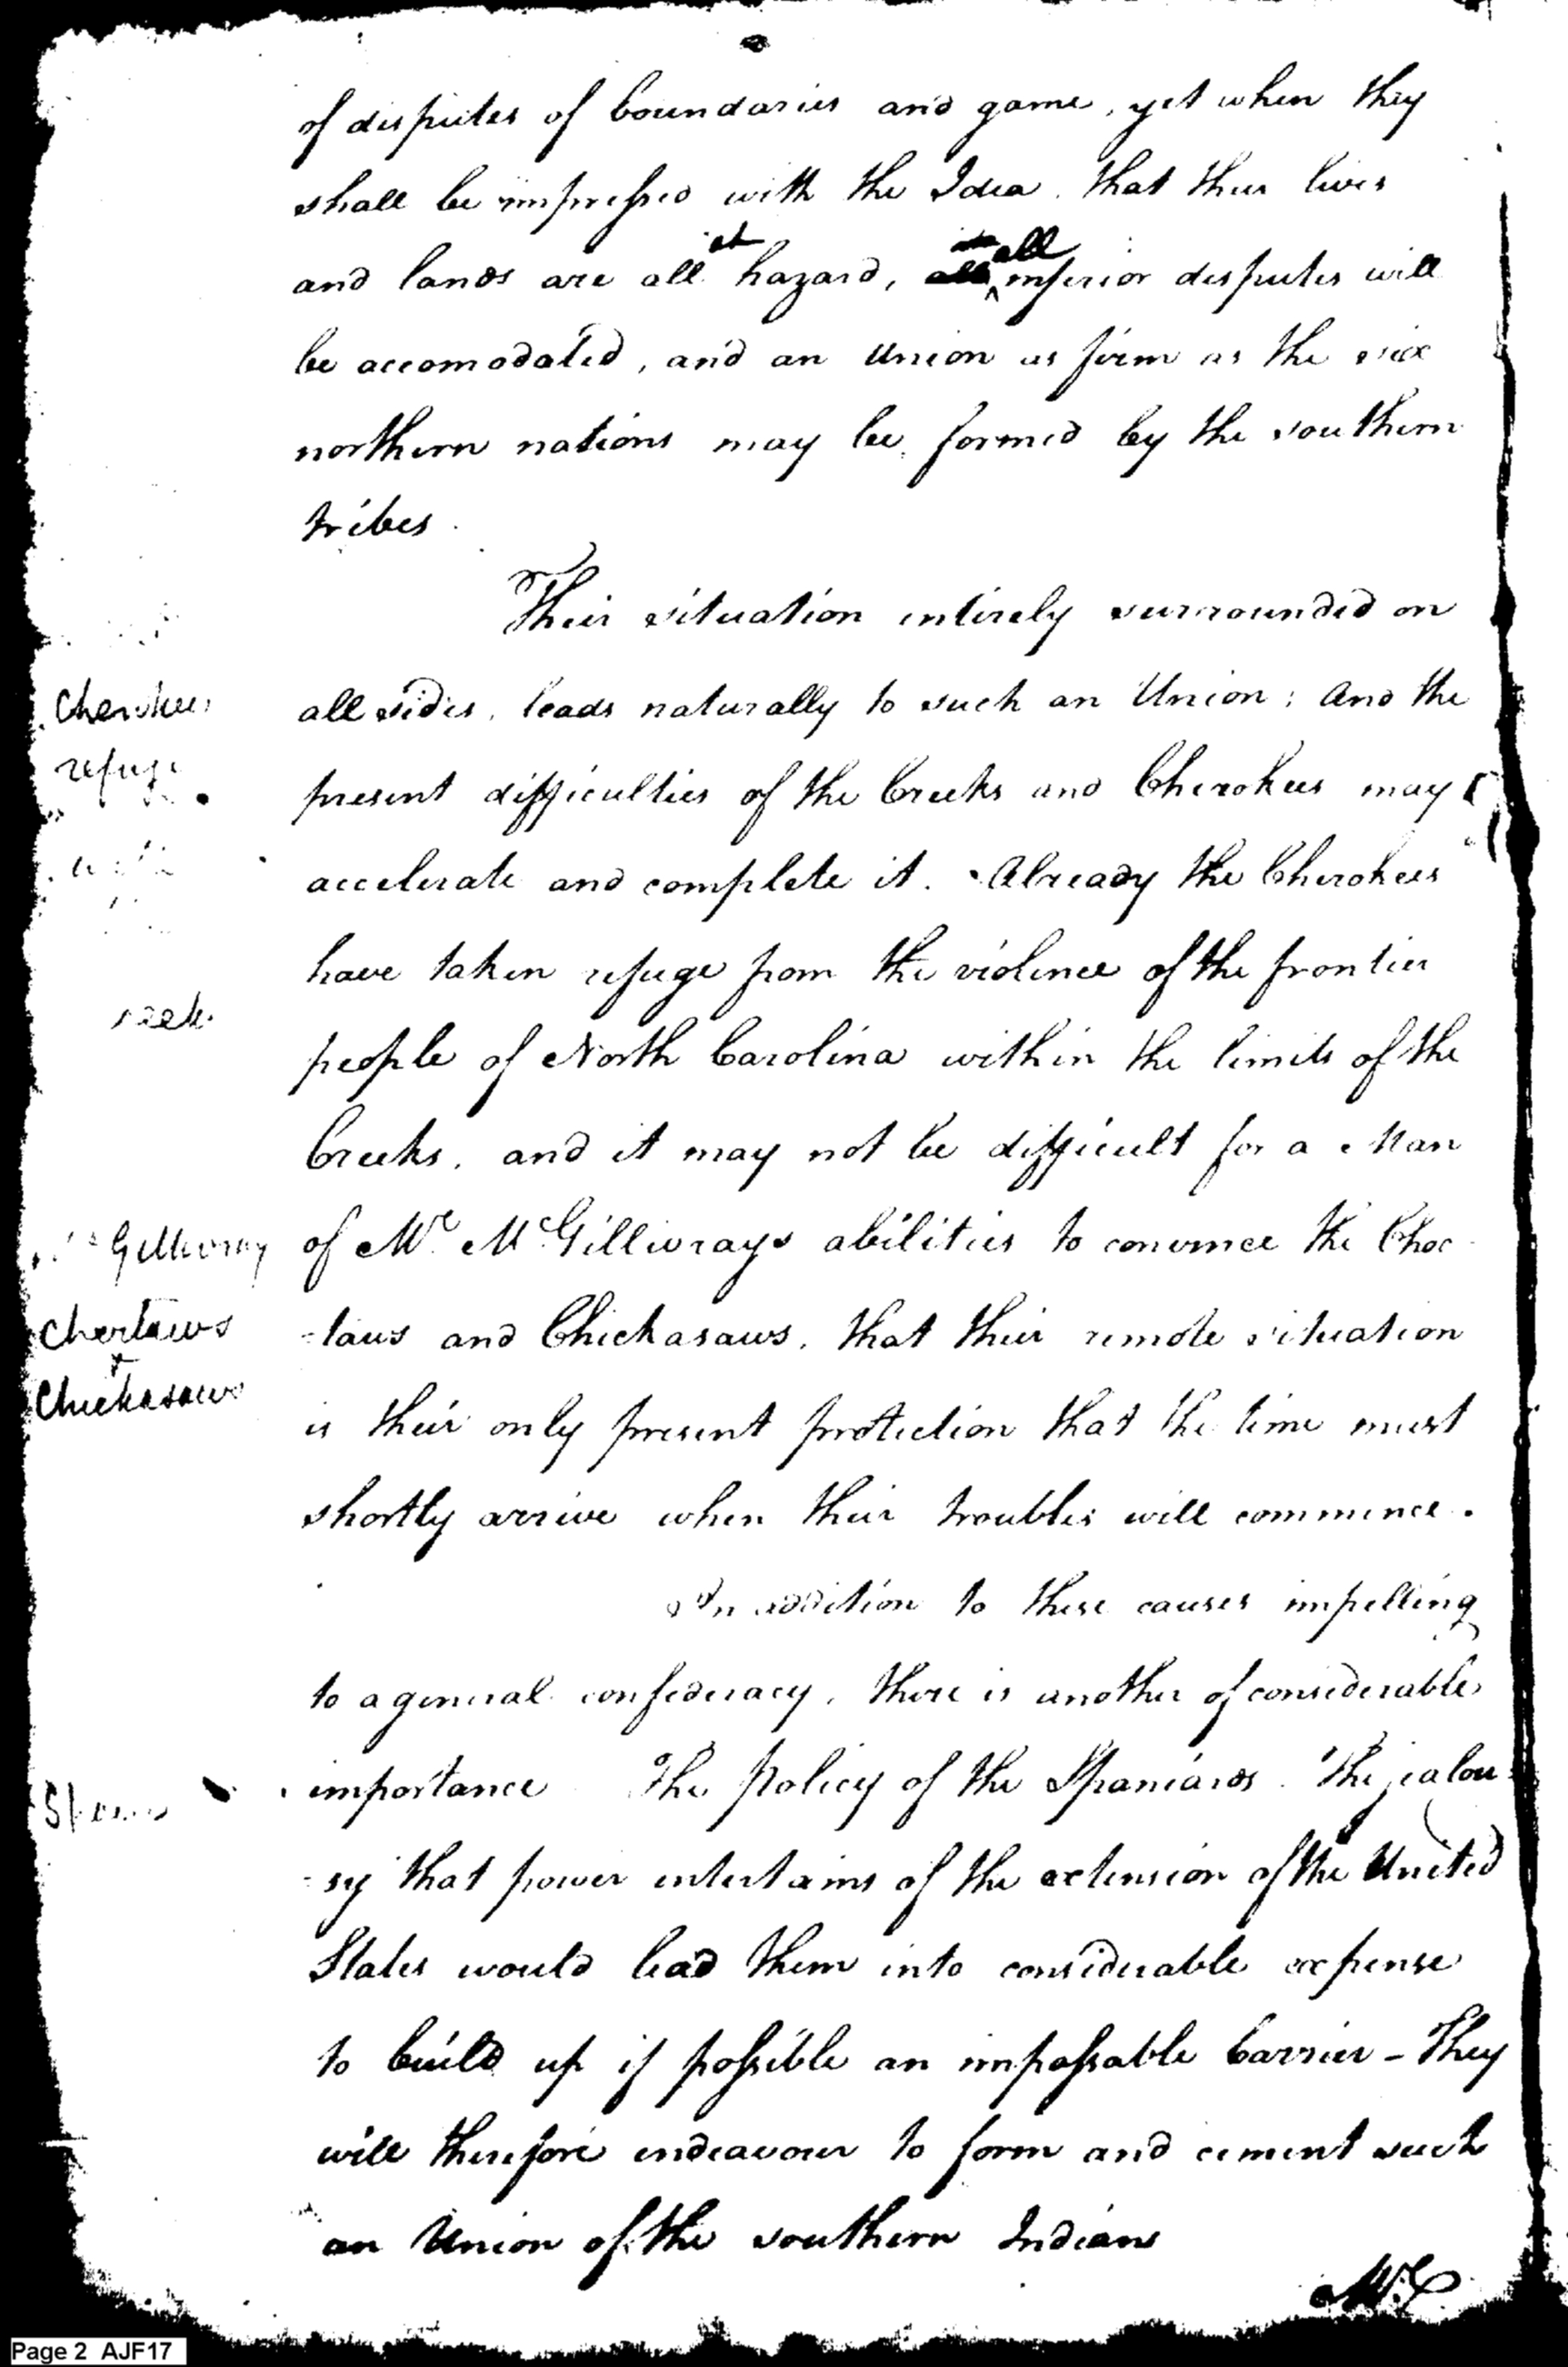 of disputes of boundaries and game, yet when they
shall be impressed with the Idea, that their lives
and lands are all at hazard, all inferior disputes will
be accomodated, and an Union as firm as the six
northern nations may be formed by the southern
tribes.
Their situation entirely surrounded on
Cherokees
all sides, leads naturally to such an Union; And the
refuge
present difficulties of the Creeks and Cherokees may
accelerate and complete it. Already the Cherokees
have taken refuge from the violence of the frontier
people of North Carolina within the limits of the
Creeks, and it may not be difficult for a Man
McGillivray
of Mr. McGillivrays abilities to convince the Choc
Choctaws
-taws and Chickasaws, that their remote situation
&
Chickasaws
is their only present protection that the time must
shortly arrive when their troubles will commence.
In addition to these causes impelling
to a general confederacy, there is another of considerable
importance The policy of the Spaniards. The jealou
-sy that power entertains of the extension of the United
States would lead them into considerable expense
to build up if possible an impassable barrier - They
will therefore endeavour to form and cement such
an Union of the southern Indians
Mr.
Page 2 AJF17